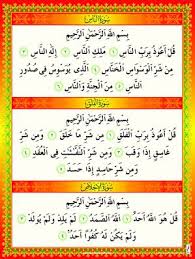 سورة الناس
بِسْمِ اللَّهِ الرَّحْمَٰنِ الرَّحِيمِ
قُلْ أَعُوذُ بِرَبِّ النَّاسِ ۝ مَلِكِ النَّاسِ ۝ إِلَٰهِ النَّاسِ
۝ مِن شَرِّ الْوَسْوَاسِ الْخَنَّاسِ ۝ الَّذِي يُوَسْوِسُ فِي صُدُورِ
النَّاسِ ۝ مِنَ الْجِنَّةِ وَالنَّاسِ ۝
سورة الفلق
بِسْمِ اللَّهِ الرَّحْمَٰنِ الرَّحِيمِ
قُلْ أَعُوذُ بِرَبِّ الْفَلَقِ ۝ مِن شَرِّ مَا خَلَقَ ۝ وَمِن شَرِّ
غَاسِقٍ إِذَا وَقَبَ ۝ وَمِن شَرِّ النَّفَّاثَاتِ فِي الْعُقَدِ ۝
وَمِن شَرِّ حَاسِدٍ إِذَا حَسَدَ ۝
سورة الإخلاص
بِسْمِ اللَّهِ الرَّحْمَٰنِ الرَّحِيمِ
قُلْ هُوَ اللَّهُ أَحَدٌ ۝ اللَّهُ الصَّمَدُ ۝ لَمْ يَلِدْ وَلَمْ يُولَدْ ۝
وَلَمْ يَكُن لَّهُ كُفُوًا أَحَدٌ ۝